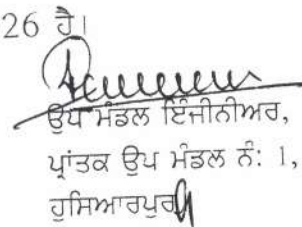 26 ਹੈ।
ਉਪ ਮੰਡਲ ਇੰਜੀਨੀਅਰ,
ਪ੍ਰਾਂਤਕ ਉਪ ਮੰਡਲ ਨੰ: 1,
ਹੁਸਿਆਰਪੁਰ